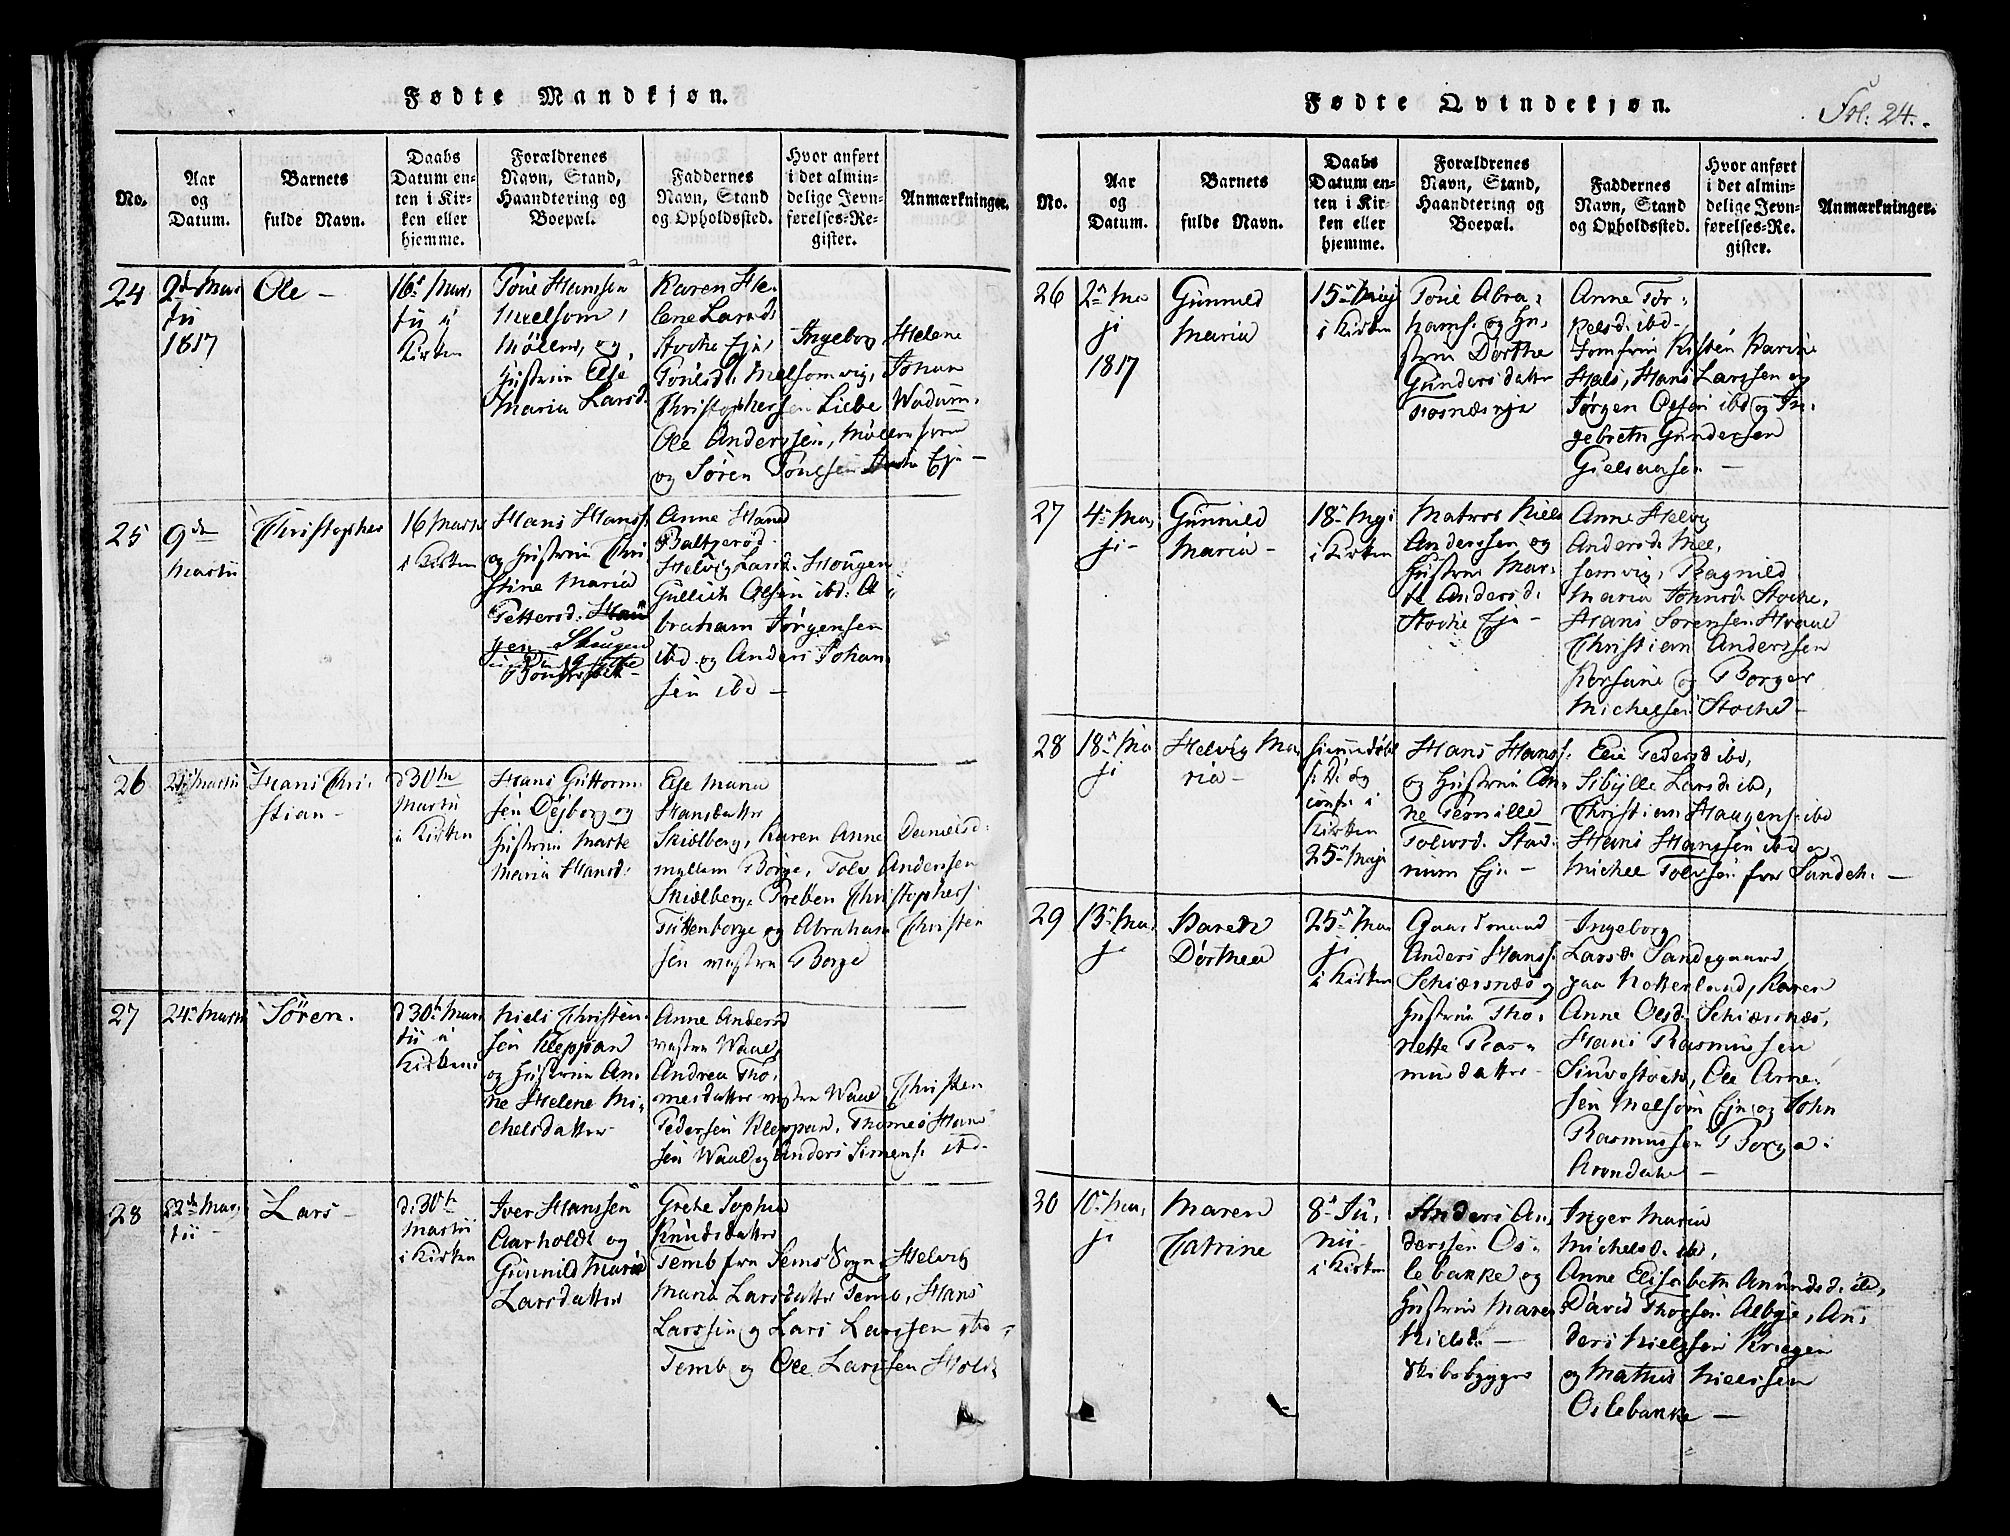 Fødte Mandkjøn.
No.
Aar
og
Datum.
Barnets
fulde Navn.
Daabs
Datum en-
ten i Kir-
ken eller
hjemme.
Forældrenes
Navn, Stand,
Haandtering og
Boepæl.
Faddernes
Navn, Stand
og Opholdssted.
Hvor anført
i det almin-
delige Jevn-
førelses-Re-
gister.
Anmærkninger.
24
1817
Ole -
16
i
Kirken
Hanssen
Melsom,
og
Hustrue Else
Maria Larsd.
Karen He-
lene Larsd.
Stocke Eje,
Ingebor Helene
Melsomvig, Johan
Christophersen Wadum.
Ole Anderssen,
og Søren
25
9de
Martii
Christopher
16 Martii
i Kirken
Hans Hanss.
og Hustrue Chri
stine Maria
Pettersd.
Anne Hansd
Helvig Larsd. Hougen
Gullich Olsen ibd. A
braham Jørgensen
ibd. og Anders Johan
sen ibd -
26
Martii
Hans Chri-
stian -
d 30te
Martii
i Kirken
Hans Guttorm
sen og
Hustrue Marte
Maria Hansd.
Else Maria
Hansdatter
Skielberg, Karen Anne Danielsd.
mellem Borge, Tolv Andersen
Skielberg, Preben Christophers.
og Abraham Christen
sen Borge
27
24 Martii
Søren.
d 30 Mar
tii i
Kirken
Niels Christen
sen Kleppan
og Hustrue An
ne Helene Mi-
chelsdatter
Anne Andersd
Waal,
Andrea Tho
mesdatter Waal, Christen
Pedersen Kleppan, Thomes Han
sen Waal og Anders Simens. ibd -
28
22de Mar
tii -
Lars -
d. 30te
Martii
i Kirken
Iver Hanssen
Aarholdt og
Gunnild Marie
Larsdatter
Grete Sophie
Knudsdatter
Temb fra Sems Sogn, Helvig
Maria Larsdatter Temb, Hans
Larssen og Lars Larssen ibd
Temb og Ole Larssen Holdt
Fødte Qvindekjøn.
Fol: 24.
No.
Aar
og
Datum.
Barnets
fulde Navn.
Daabs
Datum en-
ten i Kir-
ken eller
hjemme.
Forældrenes
Navn, Stand,
Haandtering og
Boepæl.
Faddernes
Navn, Stand
og Opholdssted.
Hvor anført
i det almin-
delige Jevn-
førelses-Re-
gister.
Anmærkninger.
26
2 Ma
ji
1817
Gunnild
Maria
15 Maji
i Kirken
Abra
hams. og Hu
strue Dorthe
Gundersdatter
Anne Tor
kelsd. ibd -
Jomfrue Kirsten Karine
Hals, Hans Larssen og
Jørgen Olsen ibd og In
gebreth Gundersen
27
4 Ma
ji -
Gunnild
Maria -
18 Maji
i Kirken
Matros Niels
Anderssen og
Hustrue Mar
te Andersd.
Stocke Eje -
Anne Helvig
Andersd. Mel
somvig, Ragnild
Maria Johnsd. Stocke,
Hans Sørensen
Christian Anderssen
og Borger
Michelsen Stocke -
28
18 Ma
ji
Helvig Ma
ria -
conf. i
Kirken
25 Maji
Hans Hanss.
og Hustrue An
ne Pernille
Eje -
Else Pedersd. ibd,
Sibylle Larsd. ibd,
Christian Haugens. ibd
Hans Hanssen ibd og
Michel Tolvsen fra Sandeh. -
29
13 Ma
ji
Karen
Dorthea
25 Ma
ji
i Kirken
Gaardmand
Anders Hanss.
og
Hustrue Tho
rette Ras
musdatter -
Ingeborg
Larsd. Sandegaard
paa Notterland, Karen
Anne Olsd.
Hans Rasmussen
Ole Arne
sen Melsom Eje og John
Rasmussen Borge i
Arendal -
30
10 Ma
ji
Maren
Catrine
8 Ju
nii -
i Kirken
Anders An
derssen Os
lebakke og
Hustrue Maren
Nielsd. -
Skibsbygger
Inger Maria
Michelsd. ibd,
Anne Elisabeth Amundsd. ibd,
David Thorsen Albye, An
ders Nielssen
og Mathis Nielssen
Oslebakke -